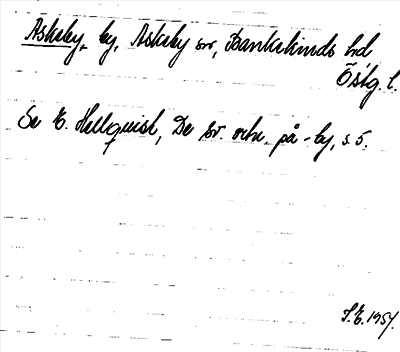 Askeby, by, Askeby sn, Bankekinds hd
Östg. l.
Se E. Hellquist, De sv. ortn. på -by, s. 5.
S.E. 1954.